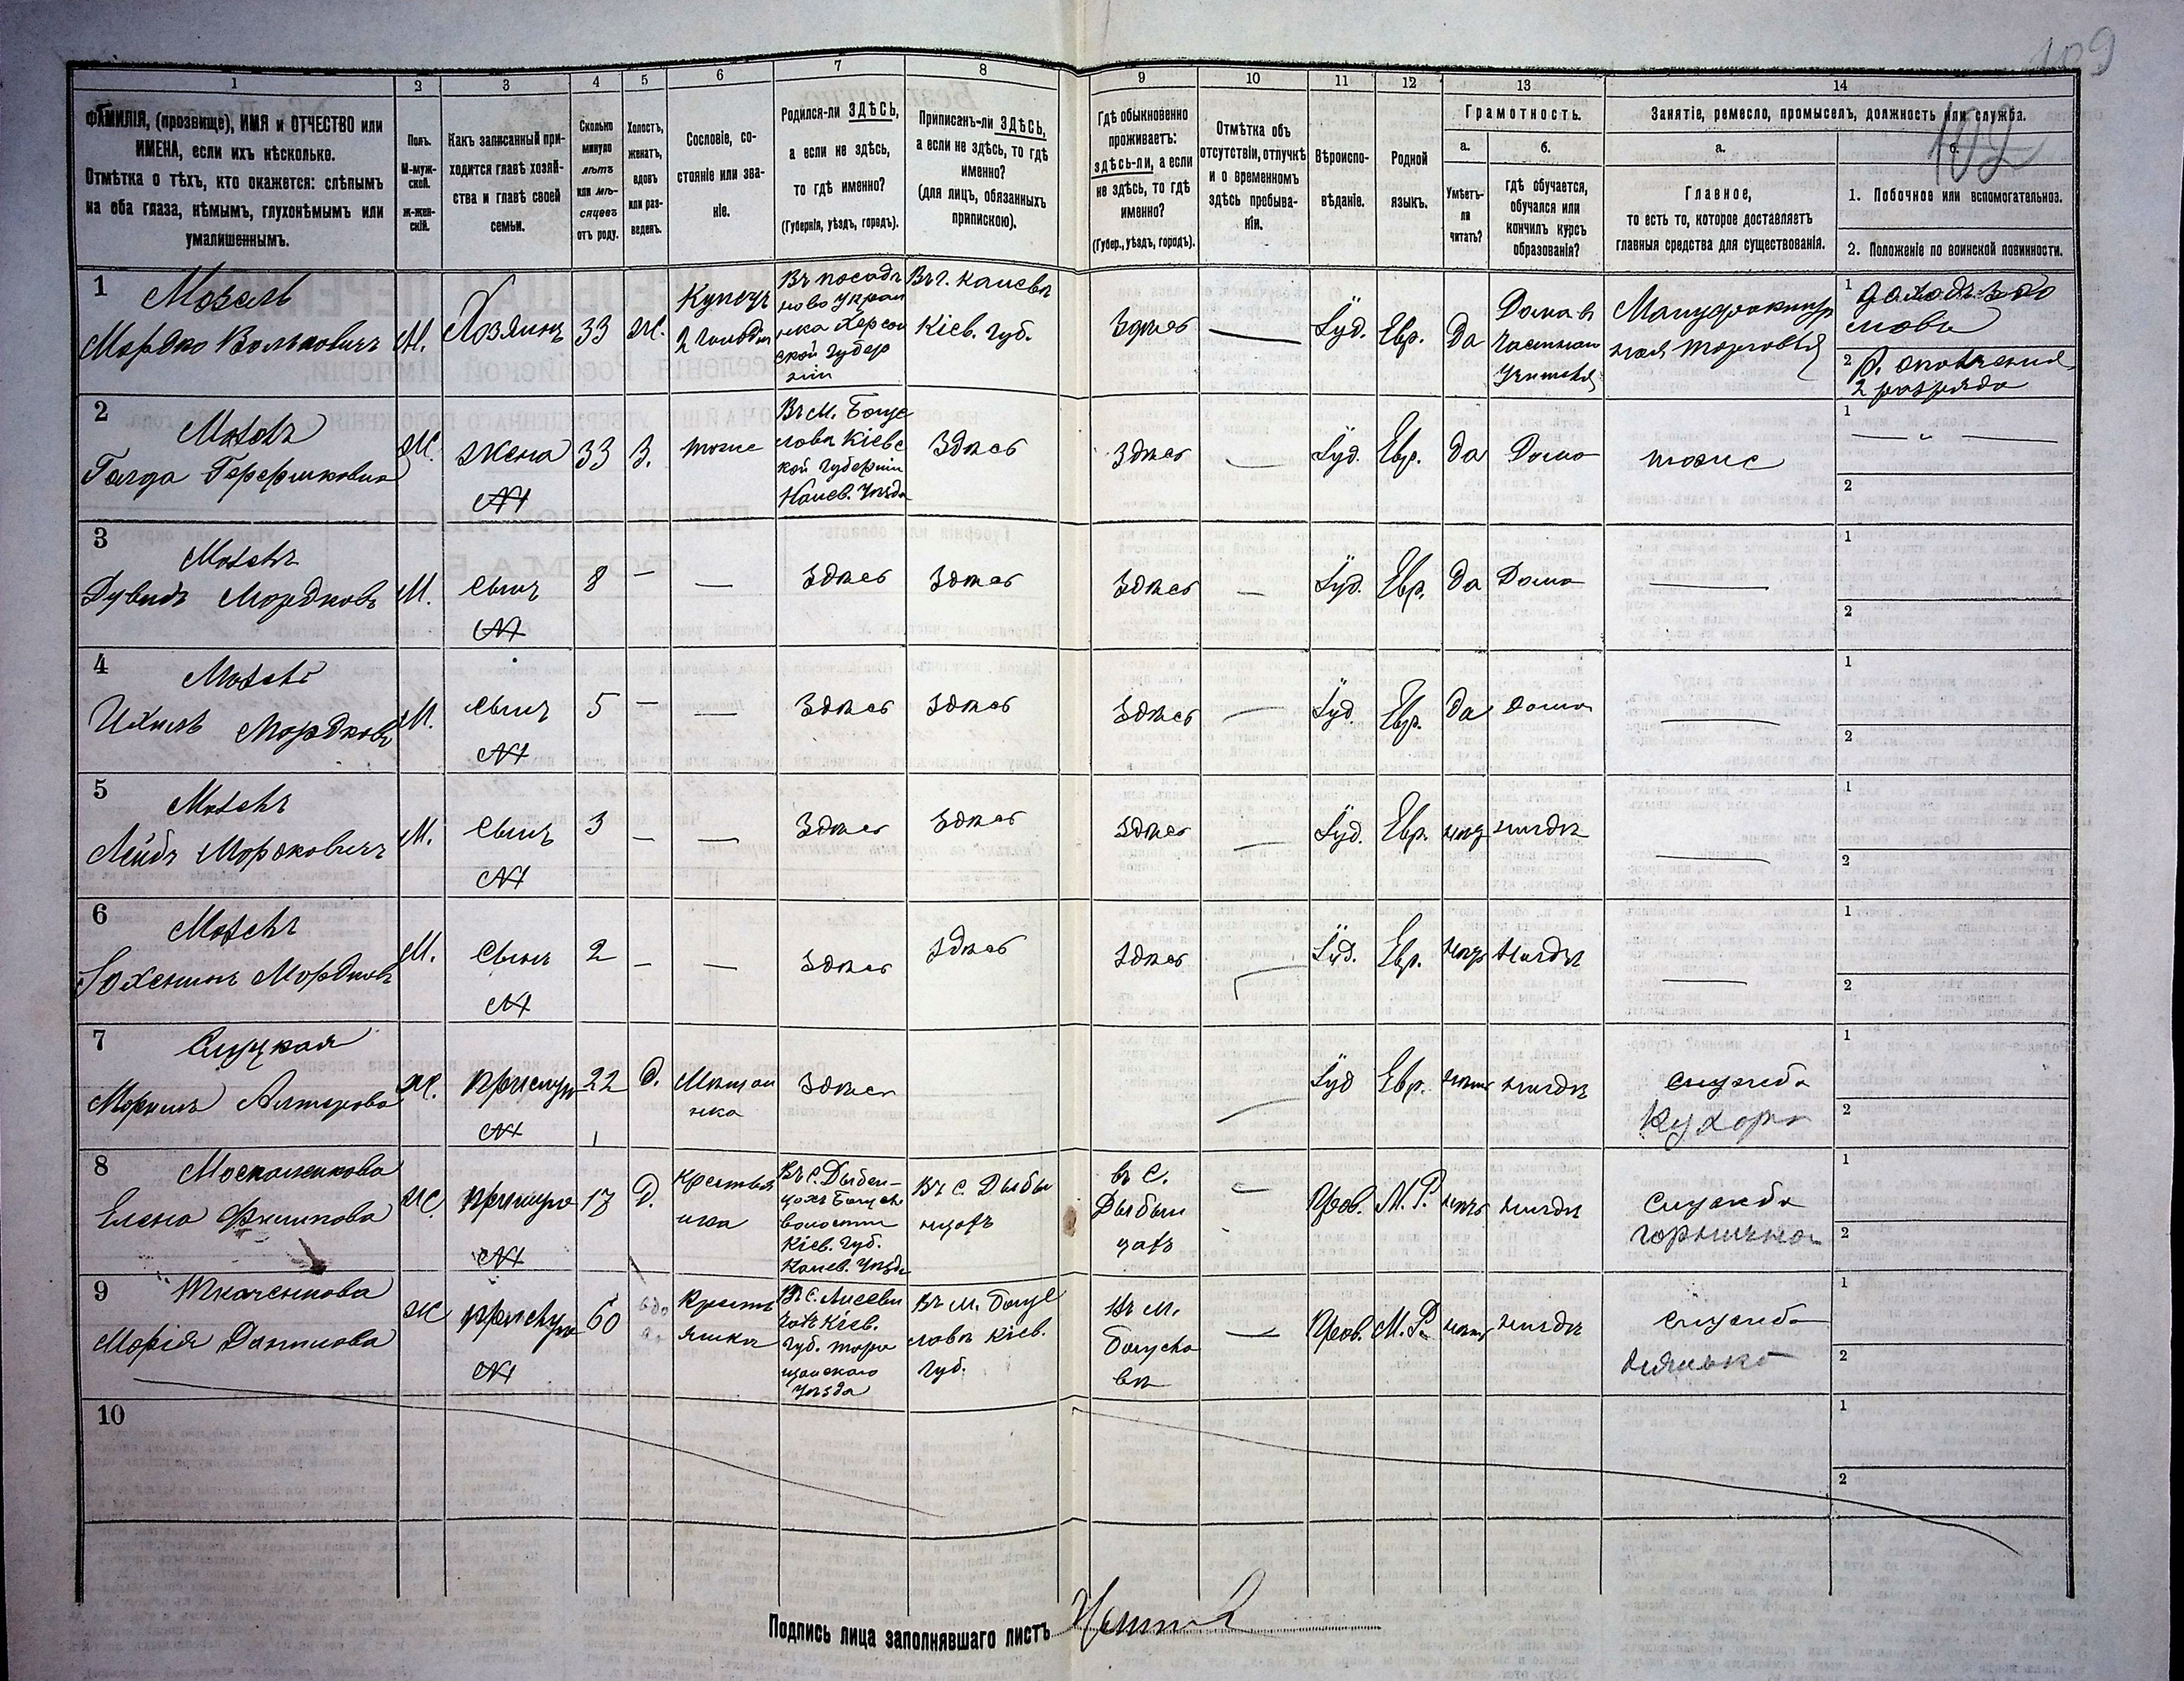 109
102
1
2
3
4
5
6
7
8
9
10
11
12
13
14
ФАМИЛІЯ, (прозвище), ИМЯ и ОТЧЕСТВО или
ИМЕНА, если ихъ нѣсколько.
Отмѣтка о тѣхъ, кто окажется: слѣпымъ
на оба глаза, нѣмымъ, глухонѣмымъ или
умалишеннымъ.
Полъ.
М-муж-
ской.
Ж-жен-
скій.
Какъ записанный при-
ходится главѣ хозяй-
ства и главѣ своей
семьи.
Сколько
минуло
лѣтъ
или мѣ-
сяцевъ
отъ роду.
Холостъ,
женатъ,
вдовъ
или раз-
веденъ.
Сословіе, со-
стояніе или зва-
ніе.
Родился-ли ЗДѢСЬ,
а если не здѣсь,
то гдѣ именно?
(Губернія, уѣздъ, городъ).
Приписанъ-ли ЗДѢСЬ,
а если не здѣсь, то гдѣ
именно?
(для лицъ, обязанныхъ
припискою).
Гдѣ обыкновенно
проживаетъ:
здѣсь-ли, а если
не здѣсь, то гдѣ
именно?
(Губер., уѣздъ, городъ).
Отмѣтка объ
отсутствіи, отлучкѣ
и о временномъ
здѣсь пребыва-
ніи.
Вѣроиспо-
вѣданіе.
Родной
языкъ.
Грамотность.
а.
Умѣетъ-
ли
читать?
б.
гдѣ обучается,
обучался или
кончилъ курсъ
образованія?
Занятіе, ремесло, промыселъ, должность или служба.
а.
Главное,
то есть то, которое доставляетъ
главныя средства для существованія.
б.
1. Побочное или вспомогательное.
2. Положеніе по воинской повинности.
1
Мозель
Мордко Вольковичъ
М.
Хозяинъ
33
Ж.
Купецъ
2 гильдіи
Въ посадѣ
ново Украи
нка Херсон
ской губер
ніи
Въ г. Каневѣ
Кіев. губ.
Здѣсь
Іуд.
Евр.
Да
Дома в
частнаго
учителя
Мануфактур
ная торговля
1
домовъ
2
р. ополченія
2 разряда
2
Мозель
Голда Гершковна
Ж.
Жена
33
З.
тоже
Въ м. Богус
лавѣ Кіевс
кой губерніи
Канев. уѣзда
Здѣсь
Здѣсь
Іуд.
Евр.
Да
Дома
тоже
1
2
3
Мозель
Дувидъ Мордковъ
М.
Сынъ
8
Здѣсь
Здѣсь
Здѣсь
Іуд.
Евр.
Да
Дома
1
2
4
Мозель
Ихиль Мордковъ
М.
Сынъ
5
Здѣсь
Здѣсь
Здѣсь
Іуд.
Евр.
Да
Дома
1
2
5
Мозель
Лейбъ Мордковичъ
М.
Сынъ
3
Здѣсь
Здѣсь
Здѣсь
Іуд.
Евр.
нигдѣ
1
2
6
Мозель
Мордковъ
М.
Сынъ
2
Здѣсь
Здѣсь
Здѣсь
Іуд.
Евр.
нигдѣ
1
2
7
Слуцкая
Алтерова
Ж.
прислуг
22
Д.
Мѣщан
нка
Здѣсь
Іуд
Евр.
нѣтъ
нигдѣ
служба
Кухарк
1
2
8
Москаленкова
Елена Филипова
Ж.
прислуга
17
Д.
Крестья
нка
Въ с. Дыбен-
цахъ Богусл
волости
Кіев. губ.
Канев. уѣзда
Въ с. Дыбы
нцахъ
въ с.
Дыбын
цахъ
Прав.
М. Р.
нѣтъ
нигдѣ
служба
горнична
1
2
9
Ткаченкова
Марія Данилова
Ж
прислуга
60
вдо
ва
Крестья
янка
Въ с. Лисеви
чахъ Кіев.
губ. тара
щанскаго
уѣзда
Въ м. Богус
лавѣ Кіев.
губ.
Въ м.
Богусла
вѣ
Прав.
М. Р.
нѣтъ
нигдѣ
служба
нянька
1
2
10
1
2
Подпись лица заполнявшаго листъ